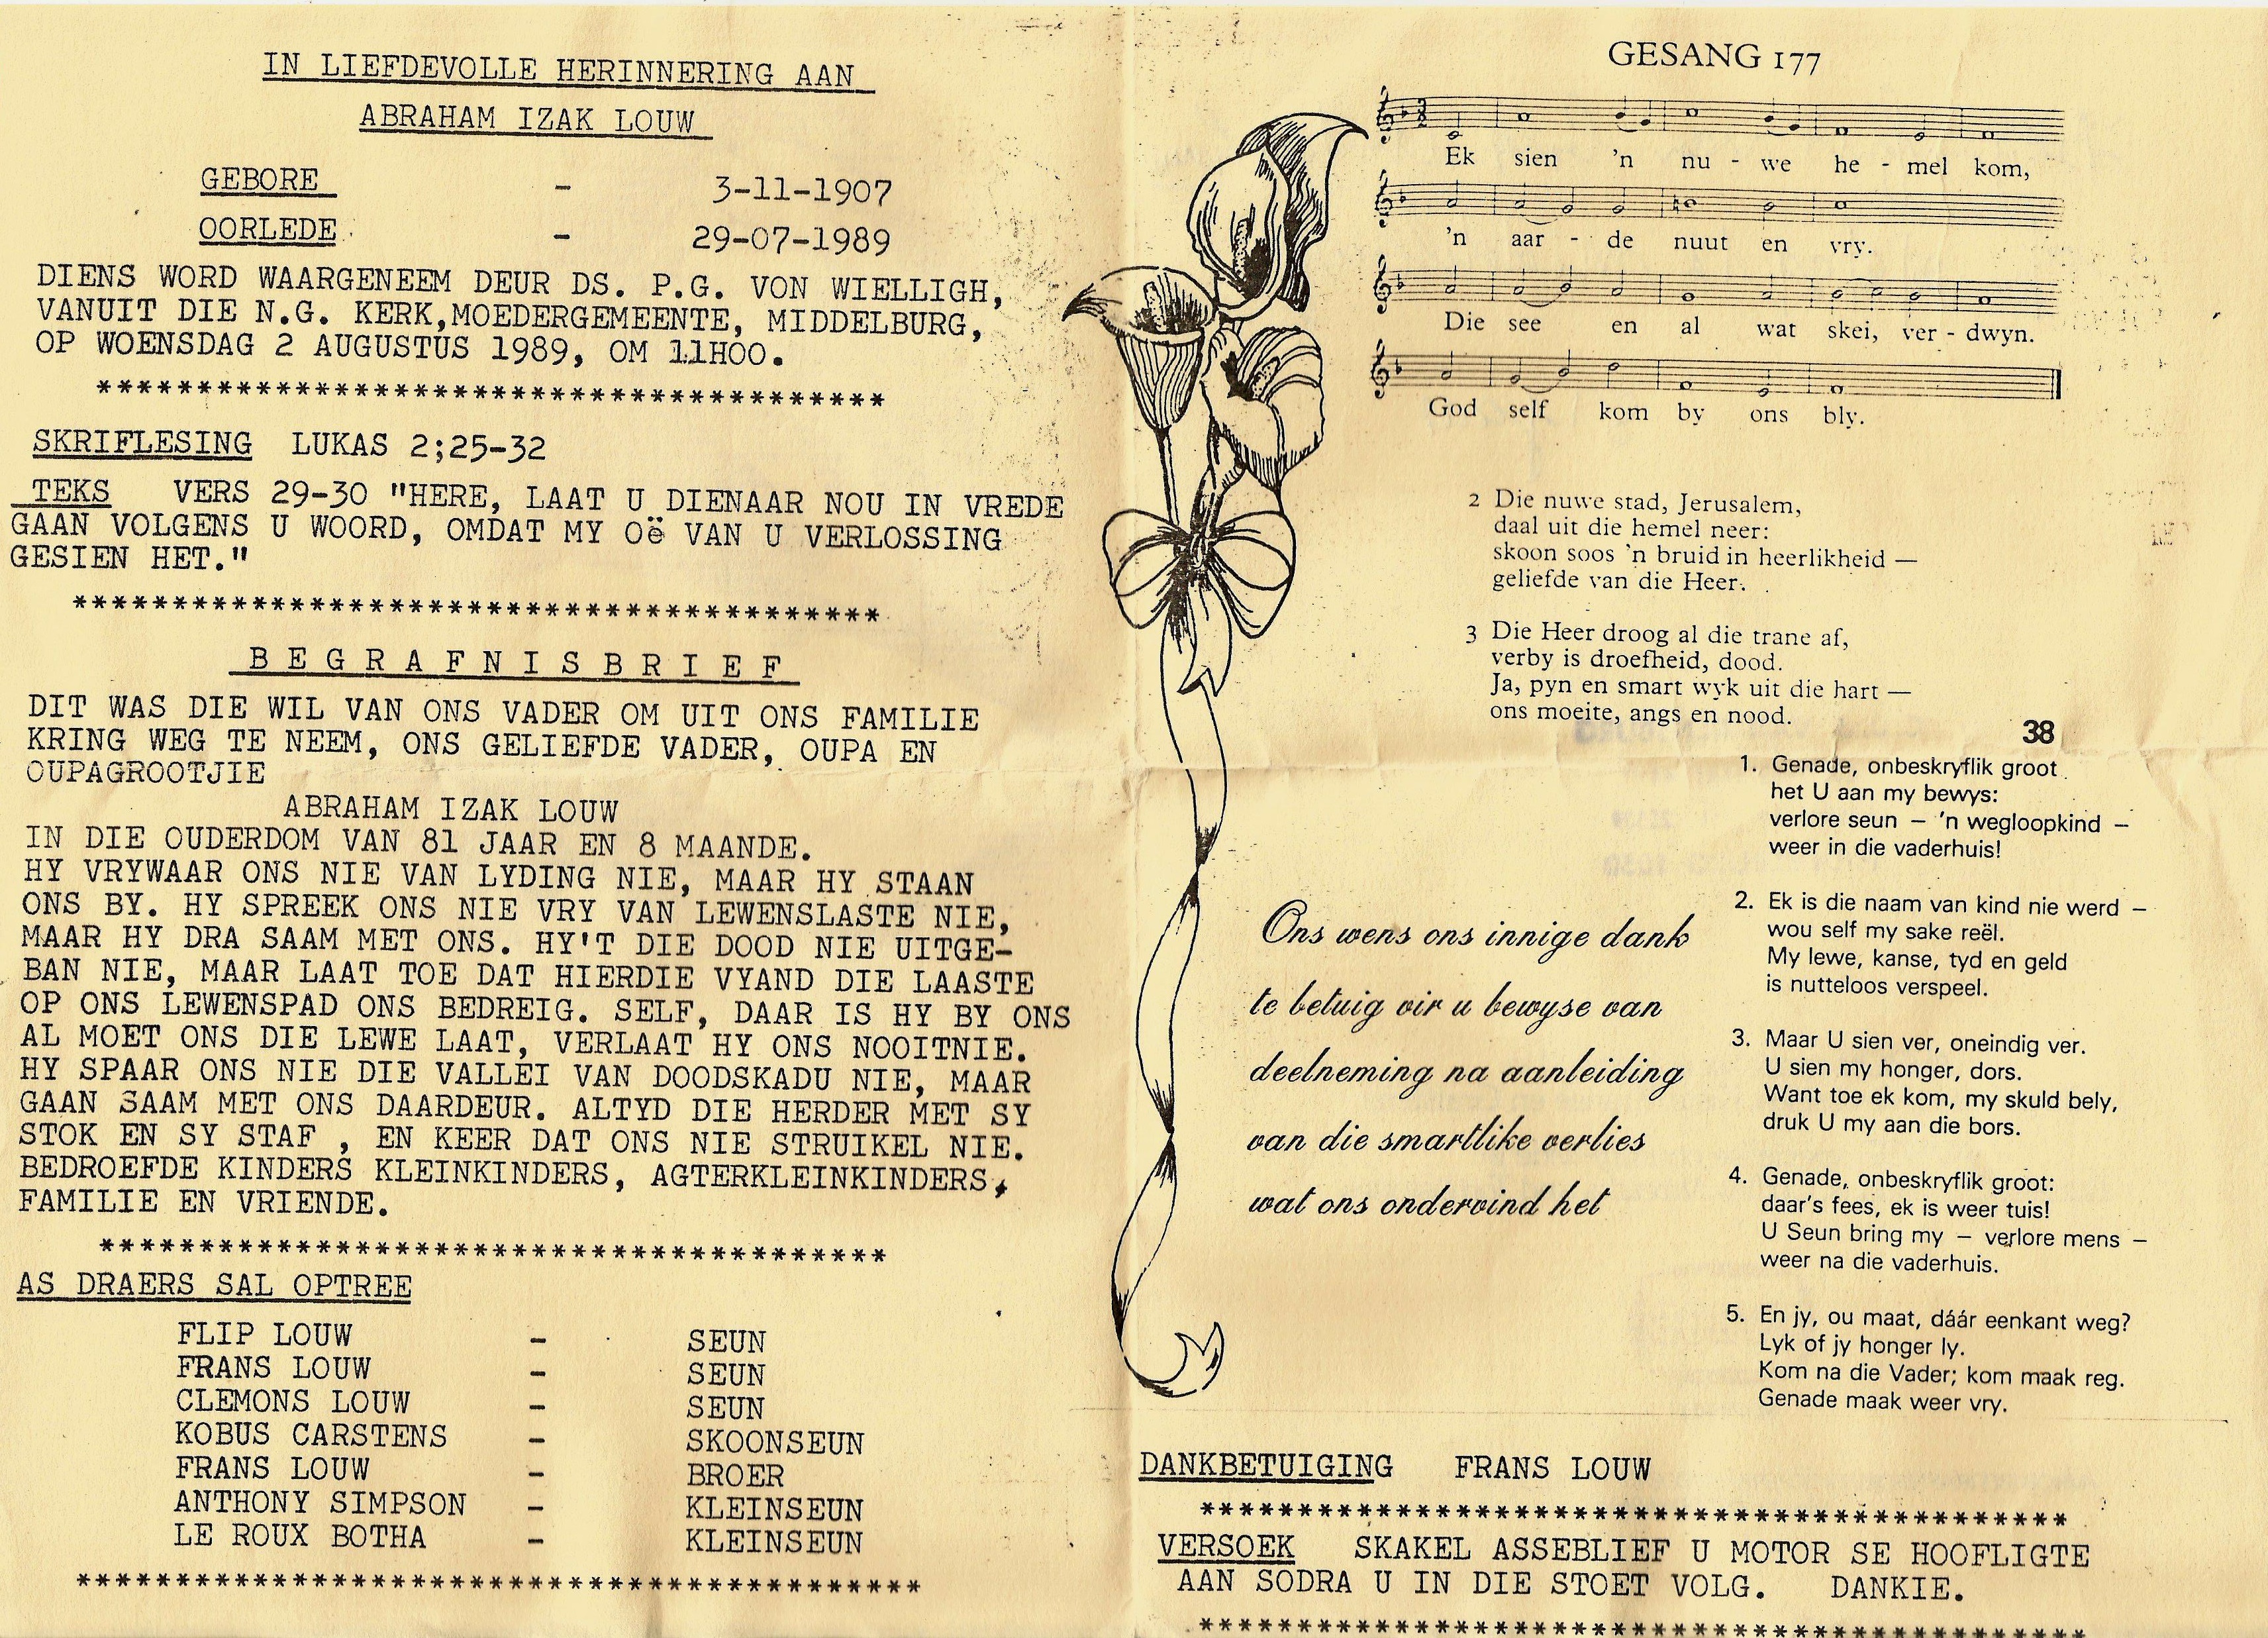 IN LIEFDEVOLLE HERINNERING AAN
ABRAHAM IZAK LOUW
GEBORE - 3-11-1907
OORLEDE - 29-07-1989
DIENS WORD WAARGENEEM DEUR DS. P.G. VON WIELLIGH,
VANUIT DIE N.G. KERK,MOEDERGEMEENTE, MIDDELBURG,
OP WOENSDAG 2 AUGUSTUS 1989, OM 11HOO.
****************************************
SKRIFLESING LUKAS 2;25-32
TEKS VERS 29-30 "HERE, LAAT U DIENAAR NOU IN VREDE
GAAN VOLGENS U WOORD, OMDAT MY Oë VAN U VERLOSSING
GESIEN HET."
*****************************************
BEGRAFNISBRIEF
DIT WAS DIE WIL VAN ONS VADER OM UIT ONS FAMILIE
KRING WEG TE NEEM, ONS GELIEFDE VADER, OUPA EN
OUPAGROOTJIE
ABRAHAM IZAK LOUW
IN DIE OUDERDOM VAN 81 JAAR EN 8 MAANDE.
HY VRYWAAR ONS NIE VAN LYDING NIE, MAAR HY STAAN
ONS BY. HY SPREEK ONS NIE VRY VAN LEWENSLASTE NIE,
MAAR HY DRA SAAM MET ONS. HY'T DIE DOOD NIE UITGE-
BAN NIE, MAAR LAAT TOE DAT HIERDIE VYAND DIE LAASTE
OP ONS LEWENSPAD ONS BEDREIG. SELF, DAAR IS HY BY ONS
AL MOET ONS DIE LEWE LAAT, VERLAAT HY ONS NOOITNIE.
HY SPAAR ONS NIE DIE VALLEI VAN DOODSKADU NIE, MAAR
GAAN SAAM MET ONS DAARDEUR. ALTYD DIE HERDER MET SY
STOK EN SY STAF , EN KEER DAT ONS NIE STRUIKEL NIE.
BEDROEFDE KINDERS KLEINKINDERS, AGTERKLEINKINDERS,
FAMILIE EN VRIENDE.
****************************************
AS DRAERS SAL OPTREE
FLIP LOUW - SEUN
FRANS LOUW - SEUN
CLEMONS LOUW - SEUN
KOBUS CARSTENS - SKOONSEUN
FRANS LOUW - BROER
ANTHONY SIMPSON - KLEINSEUN
LE ROUX BOTHA - KLEINSEUN
*******************************************
GESANG 177
Ek sien 'n nu - we he - mel kom,
'n aar - de nuut en vry.
Die see en al wat skei, ver - dwyn.
God self kom by ons bly.
2 Die nuwe stad, Jerusalem,
daal uit die hemel neer:
skoon soos 'n bruid in heerlikheid —
geliefde van die Heer.
3 Die Heer droog al die trane af,
verby is droefheid, dood.
Ja, pyn en smart wyk uit die hart —
ons moeite, angs en nood.
38
1. Genade, onbeskryflik groot
het U aan my bewys:
verlore seun – 'n wegloopkind –
weer in die vaderhuis!
2. Ek is die naam van kind nie werd –
wou self my sake reël.
My lewe, kanse, tyd en geld
is nutteloos verspeel.
3. Maar U sien ver, oneindig ver.
U sien my honger, dors.
Want toe ek kom, my skuld bely,
druk U my aan die bors.
4. Genade, onbeskryflik groot:
daar's fees, ek is weer tuis!
U Seun bring my – verlore mens –
weer na die vaderhuis.
5. En jy, ou maat, dáár eenkant weg?
Lyk of jy honger ly.
Kom na die Vader; kom maak reg.
Genade maak weer vry.
Ons wens ons innige dank
te betuig vir u bewyse van
deelneming na aanleiding
van die smartlike verlies
wat ons ondervind het
DANKBETUIGING FRANS LOUW
********************************************
VERSOEK SKAKEL ASSEBLIEF U MOTOR SE HOOFLIGTE
AAN SODRA U IN DIE STOET VOLG. DANKIE.
*********************************************